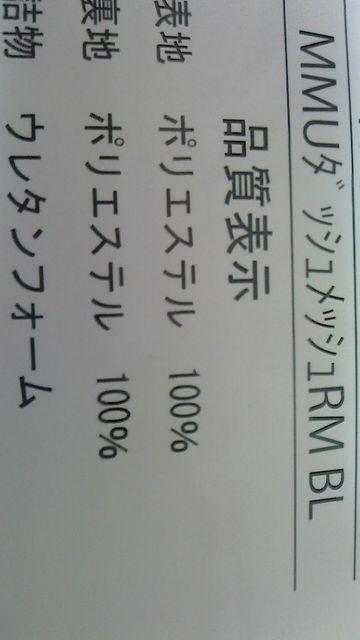 MMUダッシュメッシュRM BL
品質表示
表地 ポリエステル 100%
裏地 ポリエステル 100%
詰物 ウレタンフォーム